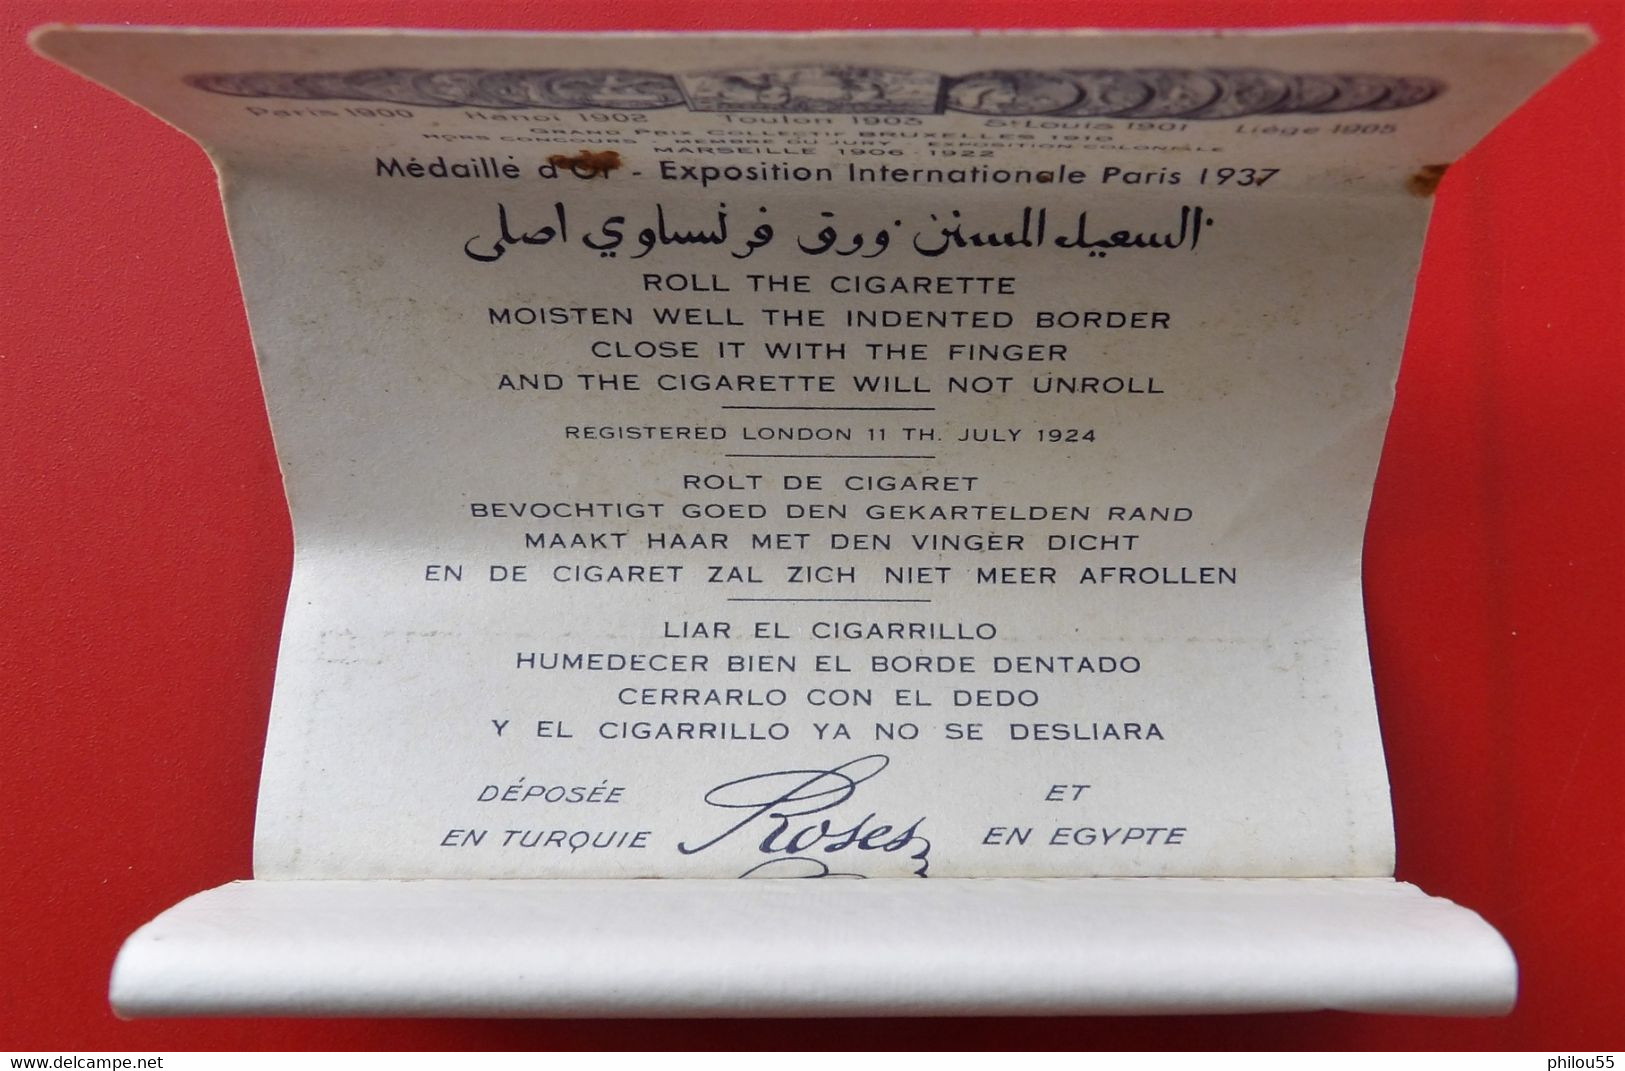 Paris 1900 Hanoi 1902 Toulon 1903 St Louis 1901 Liége 1905
GRAND PRIX COLLECTIF BRUXELLES 1910
HORS CONCOURS - MEMBRE DU JURY - EXPOSITION COLONIALE
MARSEILLE 1906 - 1922
Médaillé d'Or - Exposition Internationale Paris 1937
السعيد المسنن ورق فرنساوي اصلى
ROLL THE CIGARETTE
MOISTEN WELL THE INDENTED BORDER
CLOSE IT WITH THE FINGER
AND THE CIGARETTE WILL NOT UNROLL
REGISTERED LONDON 11 TH. JULY 1924
ROLT DE CIGARET
BEVOCHTIGT GOED DEN GEKARTELDEN RAND
MAAKT HAAR MET DEN VINGER DICHT
EN DE CIGARET ZAL ZICH NIET MEER AFROLLEN
LIAR EL CIGARRILLO
HUMEDECER BIEN EL BORDE DENTADO
CERRARLO CON EL DEDO
Y EL CIGARRILLO YA NO SE DESLIARA
DÉPOSÉE ET
EN TURQUIE Roses EN EGYPTE
www.delcampe.net philou55